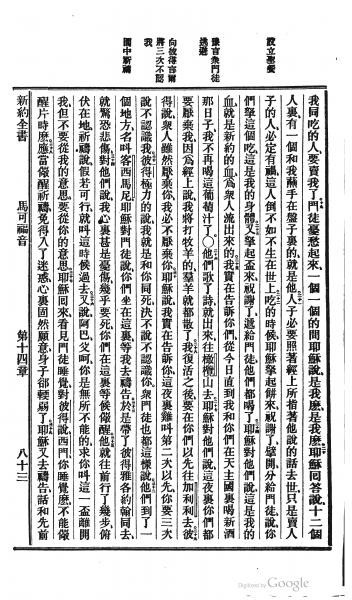 設立聖餐
豫言衆門徒逃避
向彼得言爾將三次不認我
園中祈禱
我同吃的人要賣我了門徒憂愁起來一個一個的問耶穌說是我麽是我麽耶穌回答說十二個
人裏有一個和我蘸手在盤子裏的就是他人子必要照著經上所指著他說的話去世只是賣人
子的人必定有禍這人倒不如不生在世上吃的時候耶穌拏起餅來祝謝了擘開分給門徒說你
們拏這個吃這是我的身體又拏起盃來祝謝了遞給門徒他們都喝了耶穌對他們說這是我的
血就是新約的血爲衆人流出來的我實在告訴你們從今日直到我和你們在天主國裏喝新酒
那日子我不再喝這葡萄汁了○他們歌了詩就出來往橄欖山去耶穌對他們說這夜裏你們都
要厭棄我因爲經上說我將打牧羊的羣羊就都散了我復活之後要在你們以先往加利利去彼
得說衆人雖然厭棄你我必不厭棄你耶穌說我實在告訴你這夜裏雞叫第二次以先你要三次
說不認識我彼得極力的說我就是和你同死決不說不認識你衆門徒也都這樣說他們到了一
個地方名叫客西馬尼耶穌對門徒說你們坐在這裏等我去禱告於是帶了彼得雅各約翰同去
就驚恐悲傷對他們說我心裏甚是憂傷幾乎要死你們在這裏等候儆醒他就往前行了幾步俯
伏在地祈禱說假若可行就叫這時候過去又說阿巴父呵你是無所不能的求你叫這一盃離開
我但不要從我的意思要從你的意思耶穌回來看見門徒睡覺對彼得說西門你睡覺麽不能儆
醒片時麽應當儆醒祈禱免得入了迷惑心裏固然願意身子卻輭弱了耶穌又去禱告話和先前
新約全書 馬可福音 第十四章 八十三
Digitized by Google